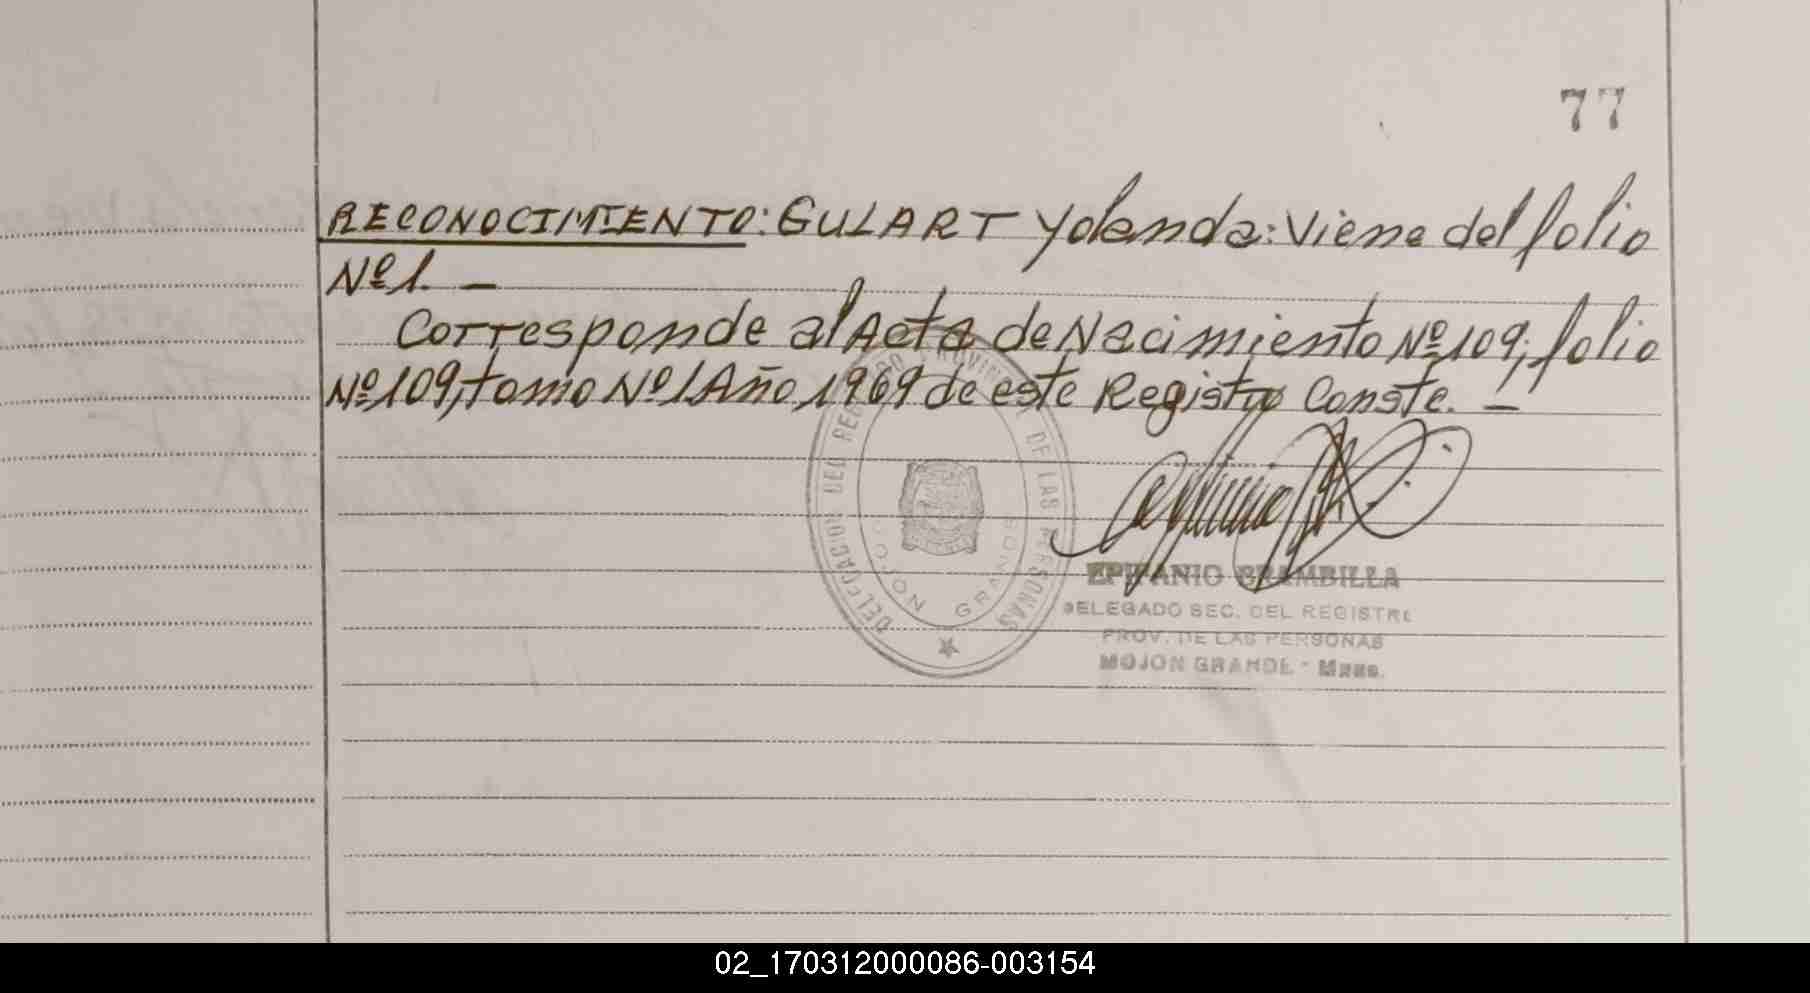 77
RECONOCIMIENTO: GULART Yolanda: Viene del folio
Nº 1. —
Corresponde al Acta de Nacimiento Nº 109, folio
Nº 109, tomo Nº 1 Año 1969 de este Registro Conste. —
DELEGACION DEL REGISTRO PROVINCIAL DE LAS PERSONAS
MOJON GRANDE
EPIFANIO GRAMBILLA
DELEGADO SEC. DEL REGISTRO
PROV. DE LAS PERSONAS
MOJON GRANDE - Mnes.
02_170312000086-003154